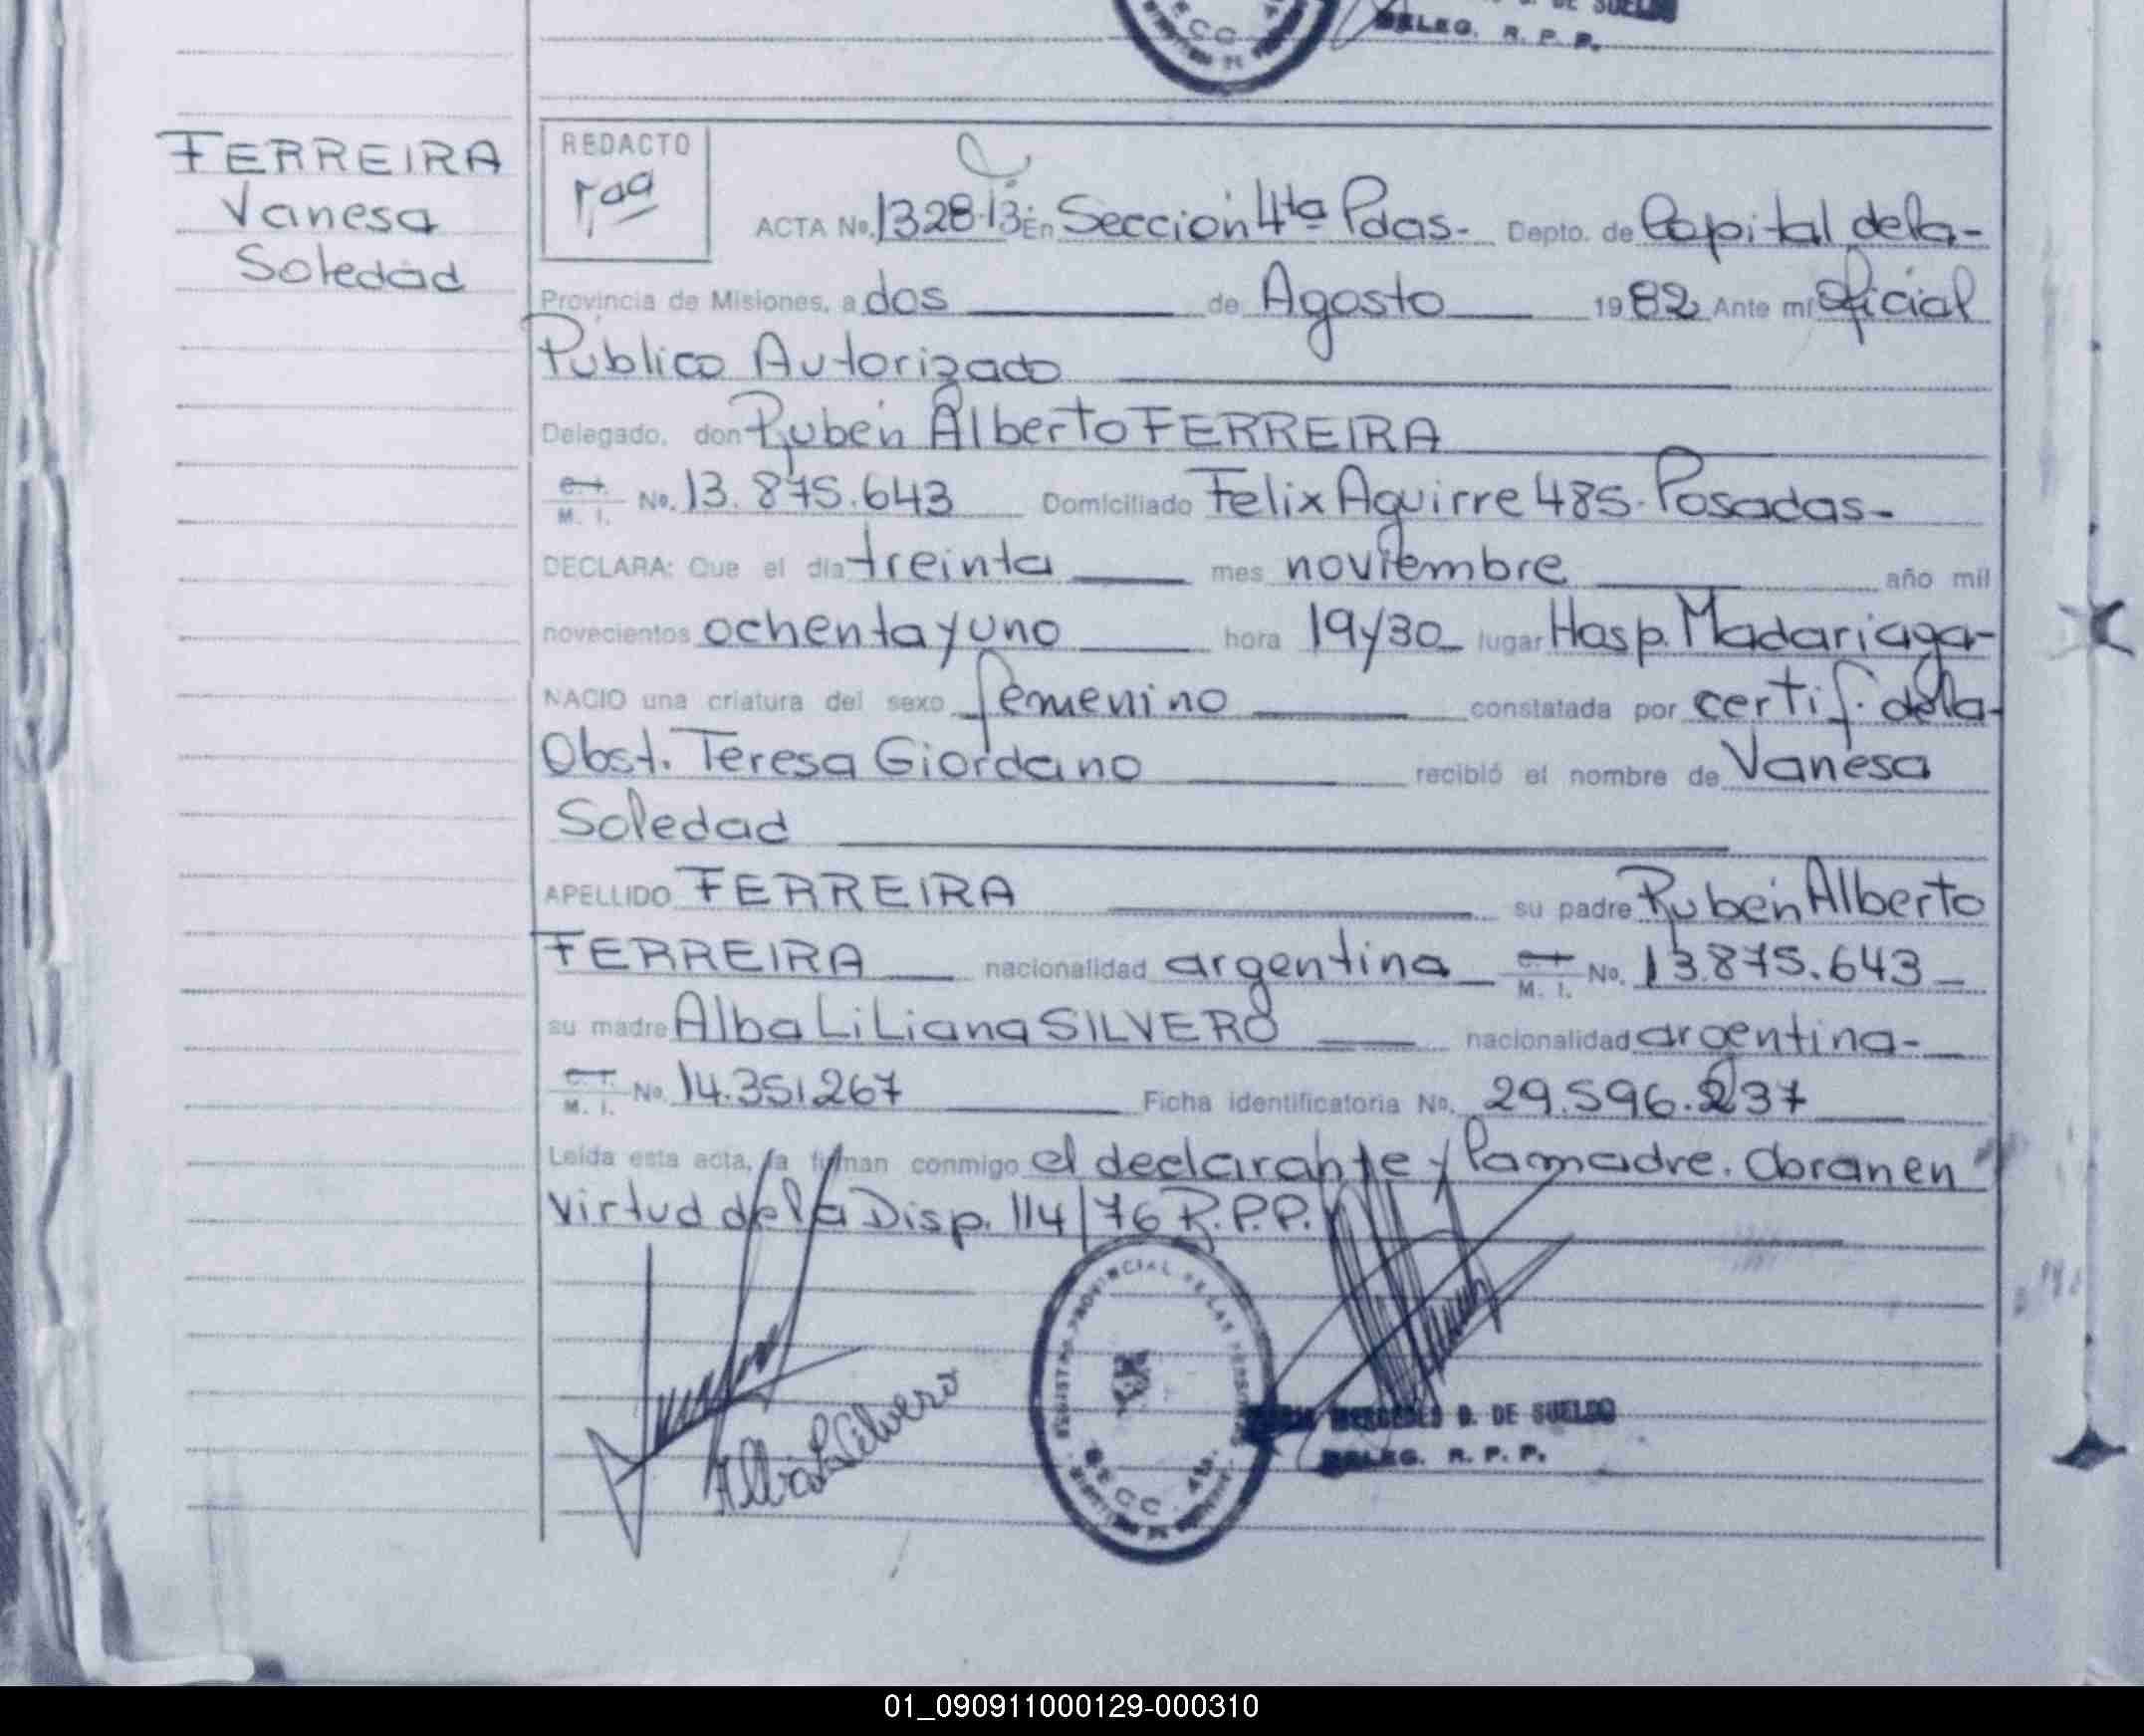 DE SUELDO
DELEG. R. P. P.
FERREIRA
Vanesa
Soledad
REDACTO
ACTA No. 1328·13 En Sección 4ta Pdas- Depto. de Capital de la-
Provincia de Misiones, a dos de Agosto 1982 Ante mí Oficial
Público Autorizado
Delegado, don Rubén Alberto FERREIRA
C. I. M. I. No. 13.875.643 Domiciliado Felix Aguirre 485. Posadas-
DECLARA: Que el día treinta mes noviembre año mil
novecientos ochenta y uno hora 19y30 lugar Hosp. Madariaga-
NACIO una criatura del sexo femenino constatada por certif. de la-
Obst. Teresa Giordano recibió el nombre de Vanesa
Soledad
APELLIDO FERREIRA su padre Rubén Alberto
FERREIRA nacionalidad argentina C. I. M. I. No. 13.875.643
su madre Alba Liliana SILVERO nacionalidad argentina-
C. I. M. I. No. 14.351.267 Ficha identificatoria No. 29.596.237
Leída esta acta, la firman conmigo el declarante y la madre. Obran en
virtud de la Disp. 114/76 R.P.P.
Alba L Silvero
REGISTRO PROVINCIAL DE LAS PERSONAS
SECC. 4ta.
MERCEDES D. DE SUELDO
DELEG. R. P. P.
01_090911000129-000310